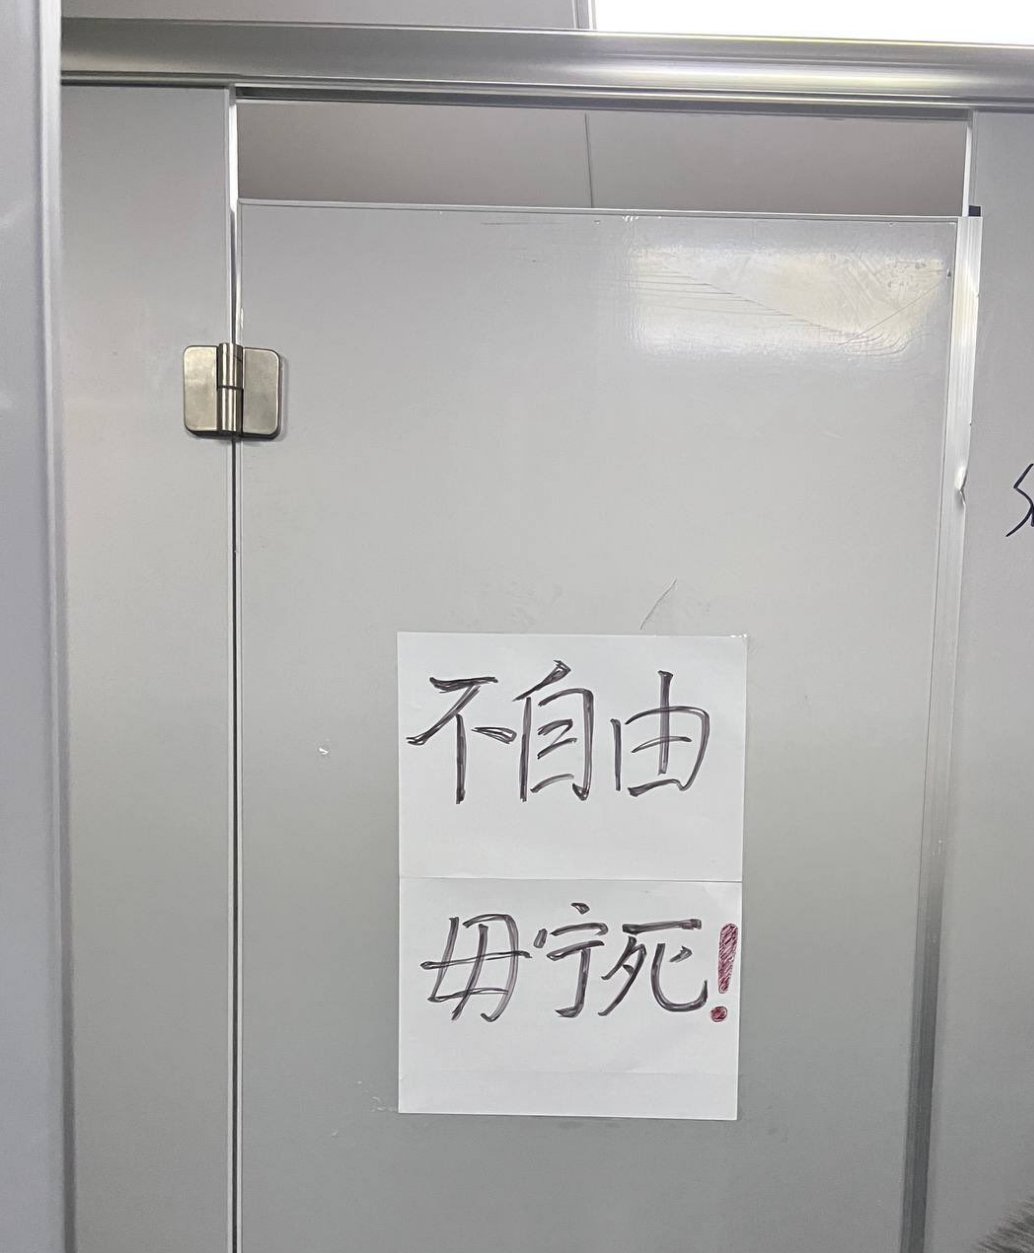 不自由
毋宁死!